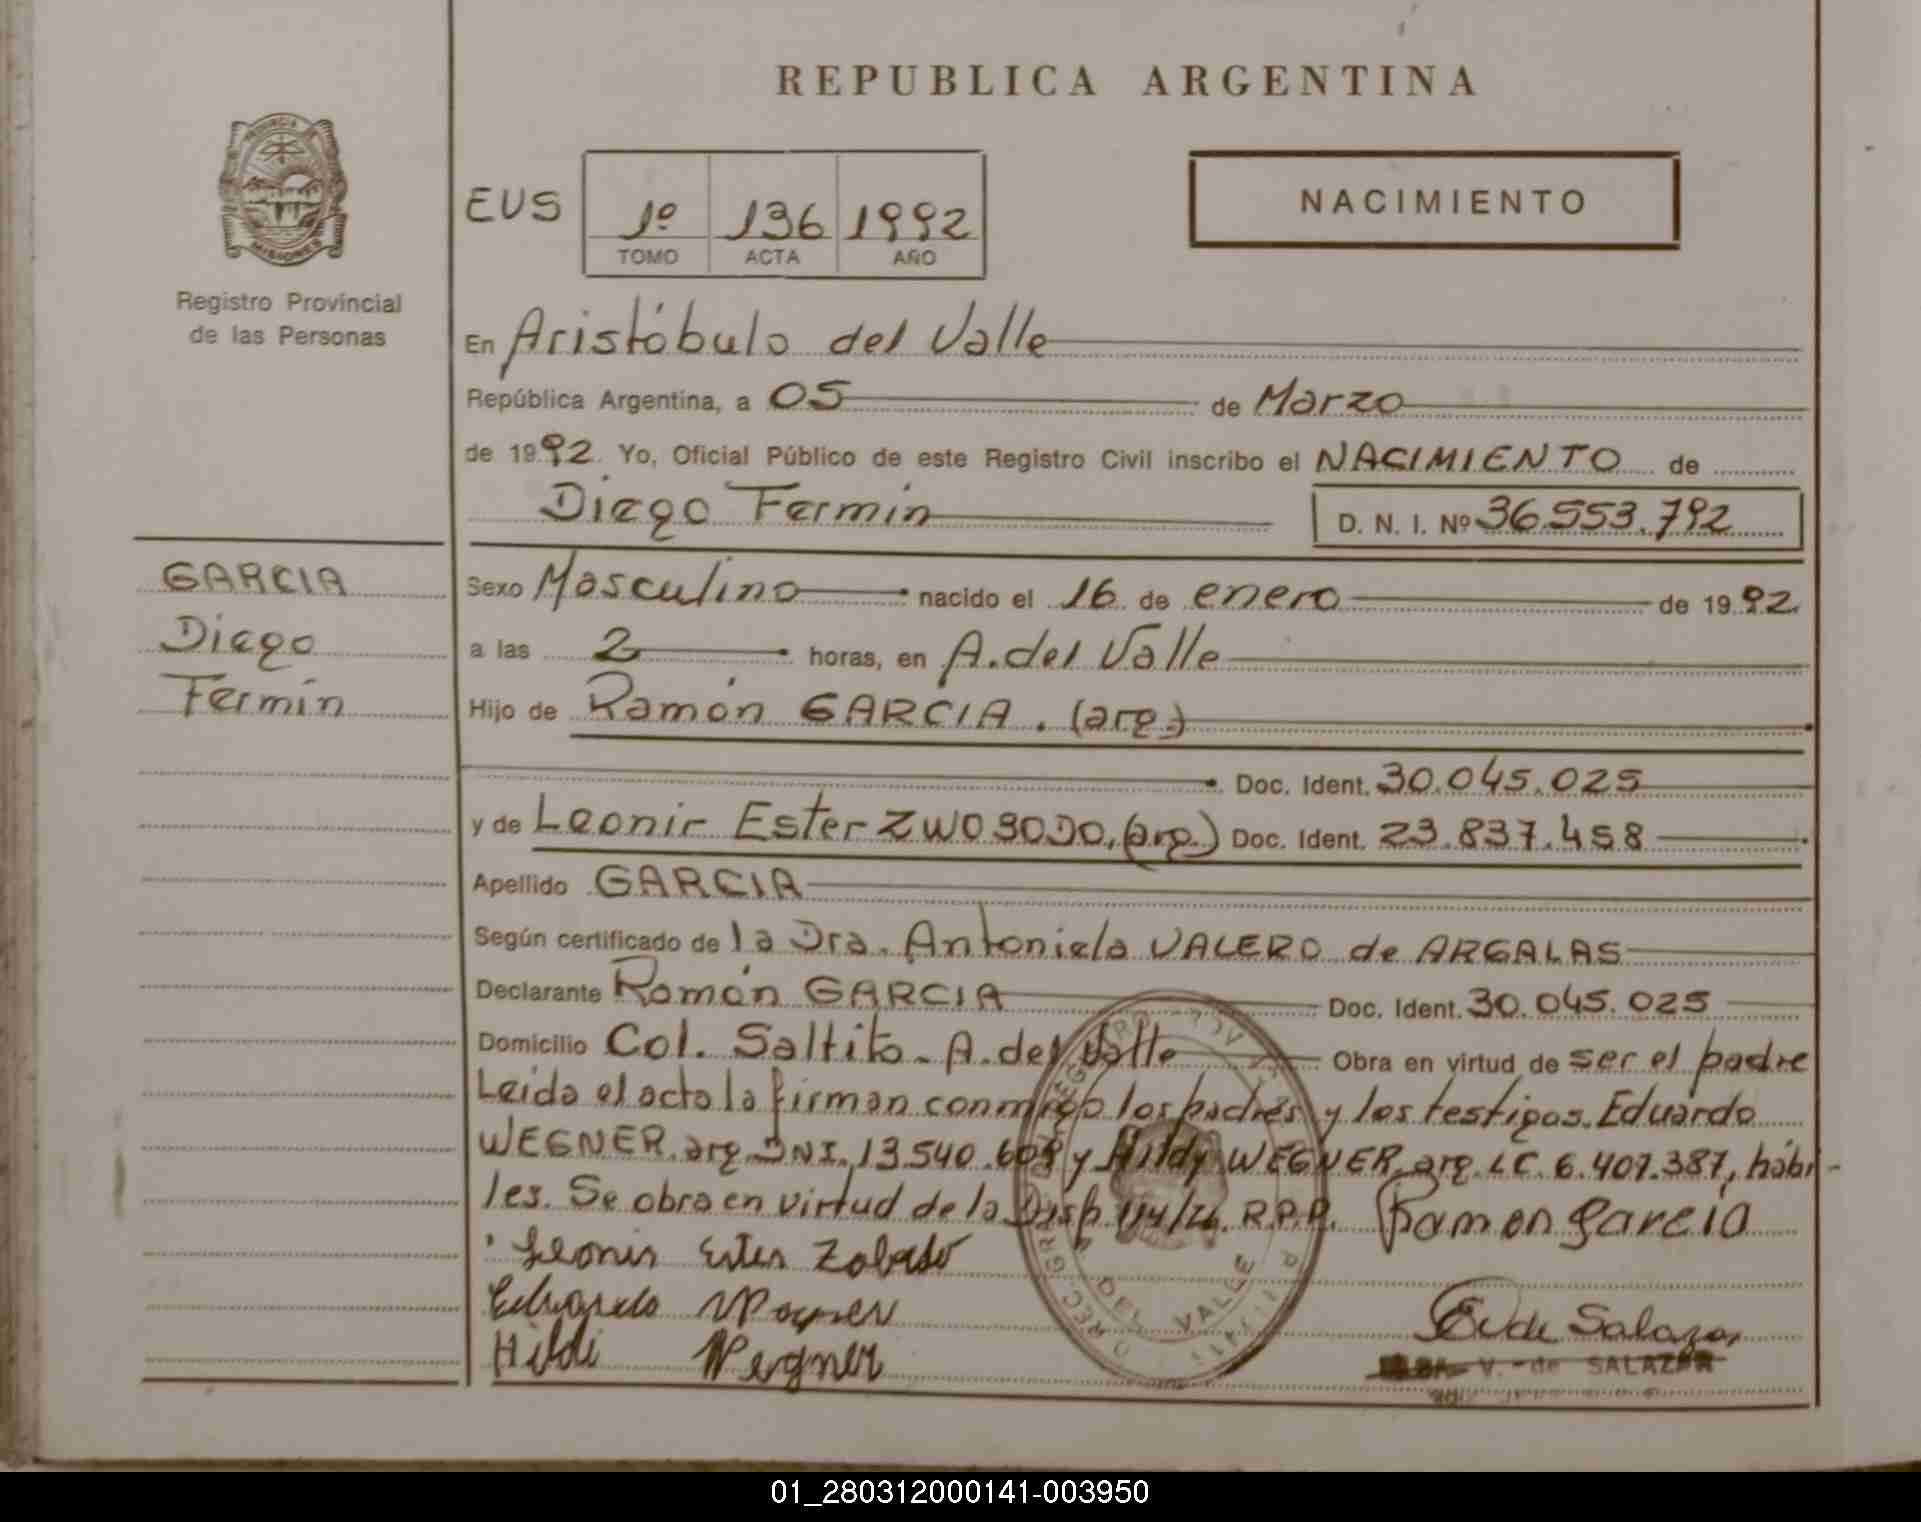 REPUBLICA ARGENTINA
PROVINCIA DE
MISIONES
Registro Provincial
de las Personas
EUS
1º 136 1992
TOMO ACTA AÑO
NACIMIENTO
En Aristóbulo del Valle
República Argentina, a 05 de Marzo
de 1992 Yo, Oficial Público de este Registro Civil inscribo el NACIMIENTO de
Diego Fermín
D. N. I. Nº 36.553.792
GARCIA
Diego
Fermín
Sexo Masculino nacido el 16 de enero de 1992
a las 2 horas, en A. del Valle
Hijo de Ramón GARCIA. (arg.)
Doc. Ident. 30.045.025
y de Leonir Ester (arg.) Doc. Ident. 23.837.458
Apellido GARCIA
Según certificado de la Dra. Antoniela VALERO de ARGALAS
Declarante Ramón GARCIA Doc. Ident. 30.045.025
Domicilio Col. Saltito - A. del Valle Obra en virtud de ser el padre
Leida el acta la firman conmigo los padres y los testigos. Eduardo
WEGNER. arg. DNI. 13.540.609 y Hildy WEGNER. arg. LC. 6.407.387, hábi-
les. Se obra en virtud de la Disp. R.P.P. Ramon Garcia
Leonir Ester
Eduardo
Hildi Wegner
DEL VALLE
E V de Salazar
V. de SALAZAR
01_280312000141-003950